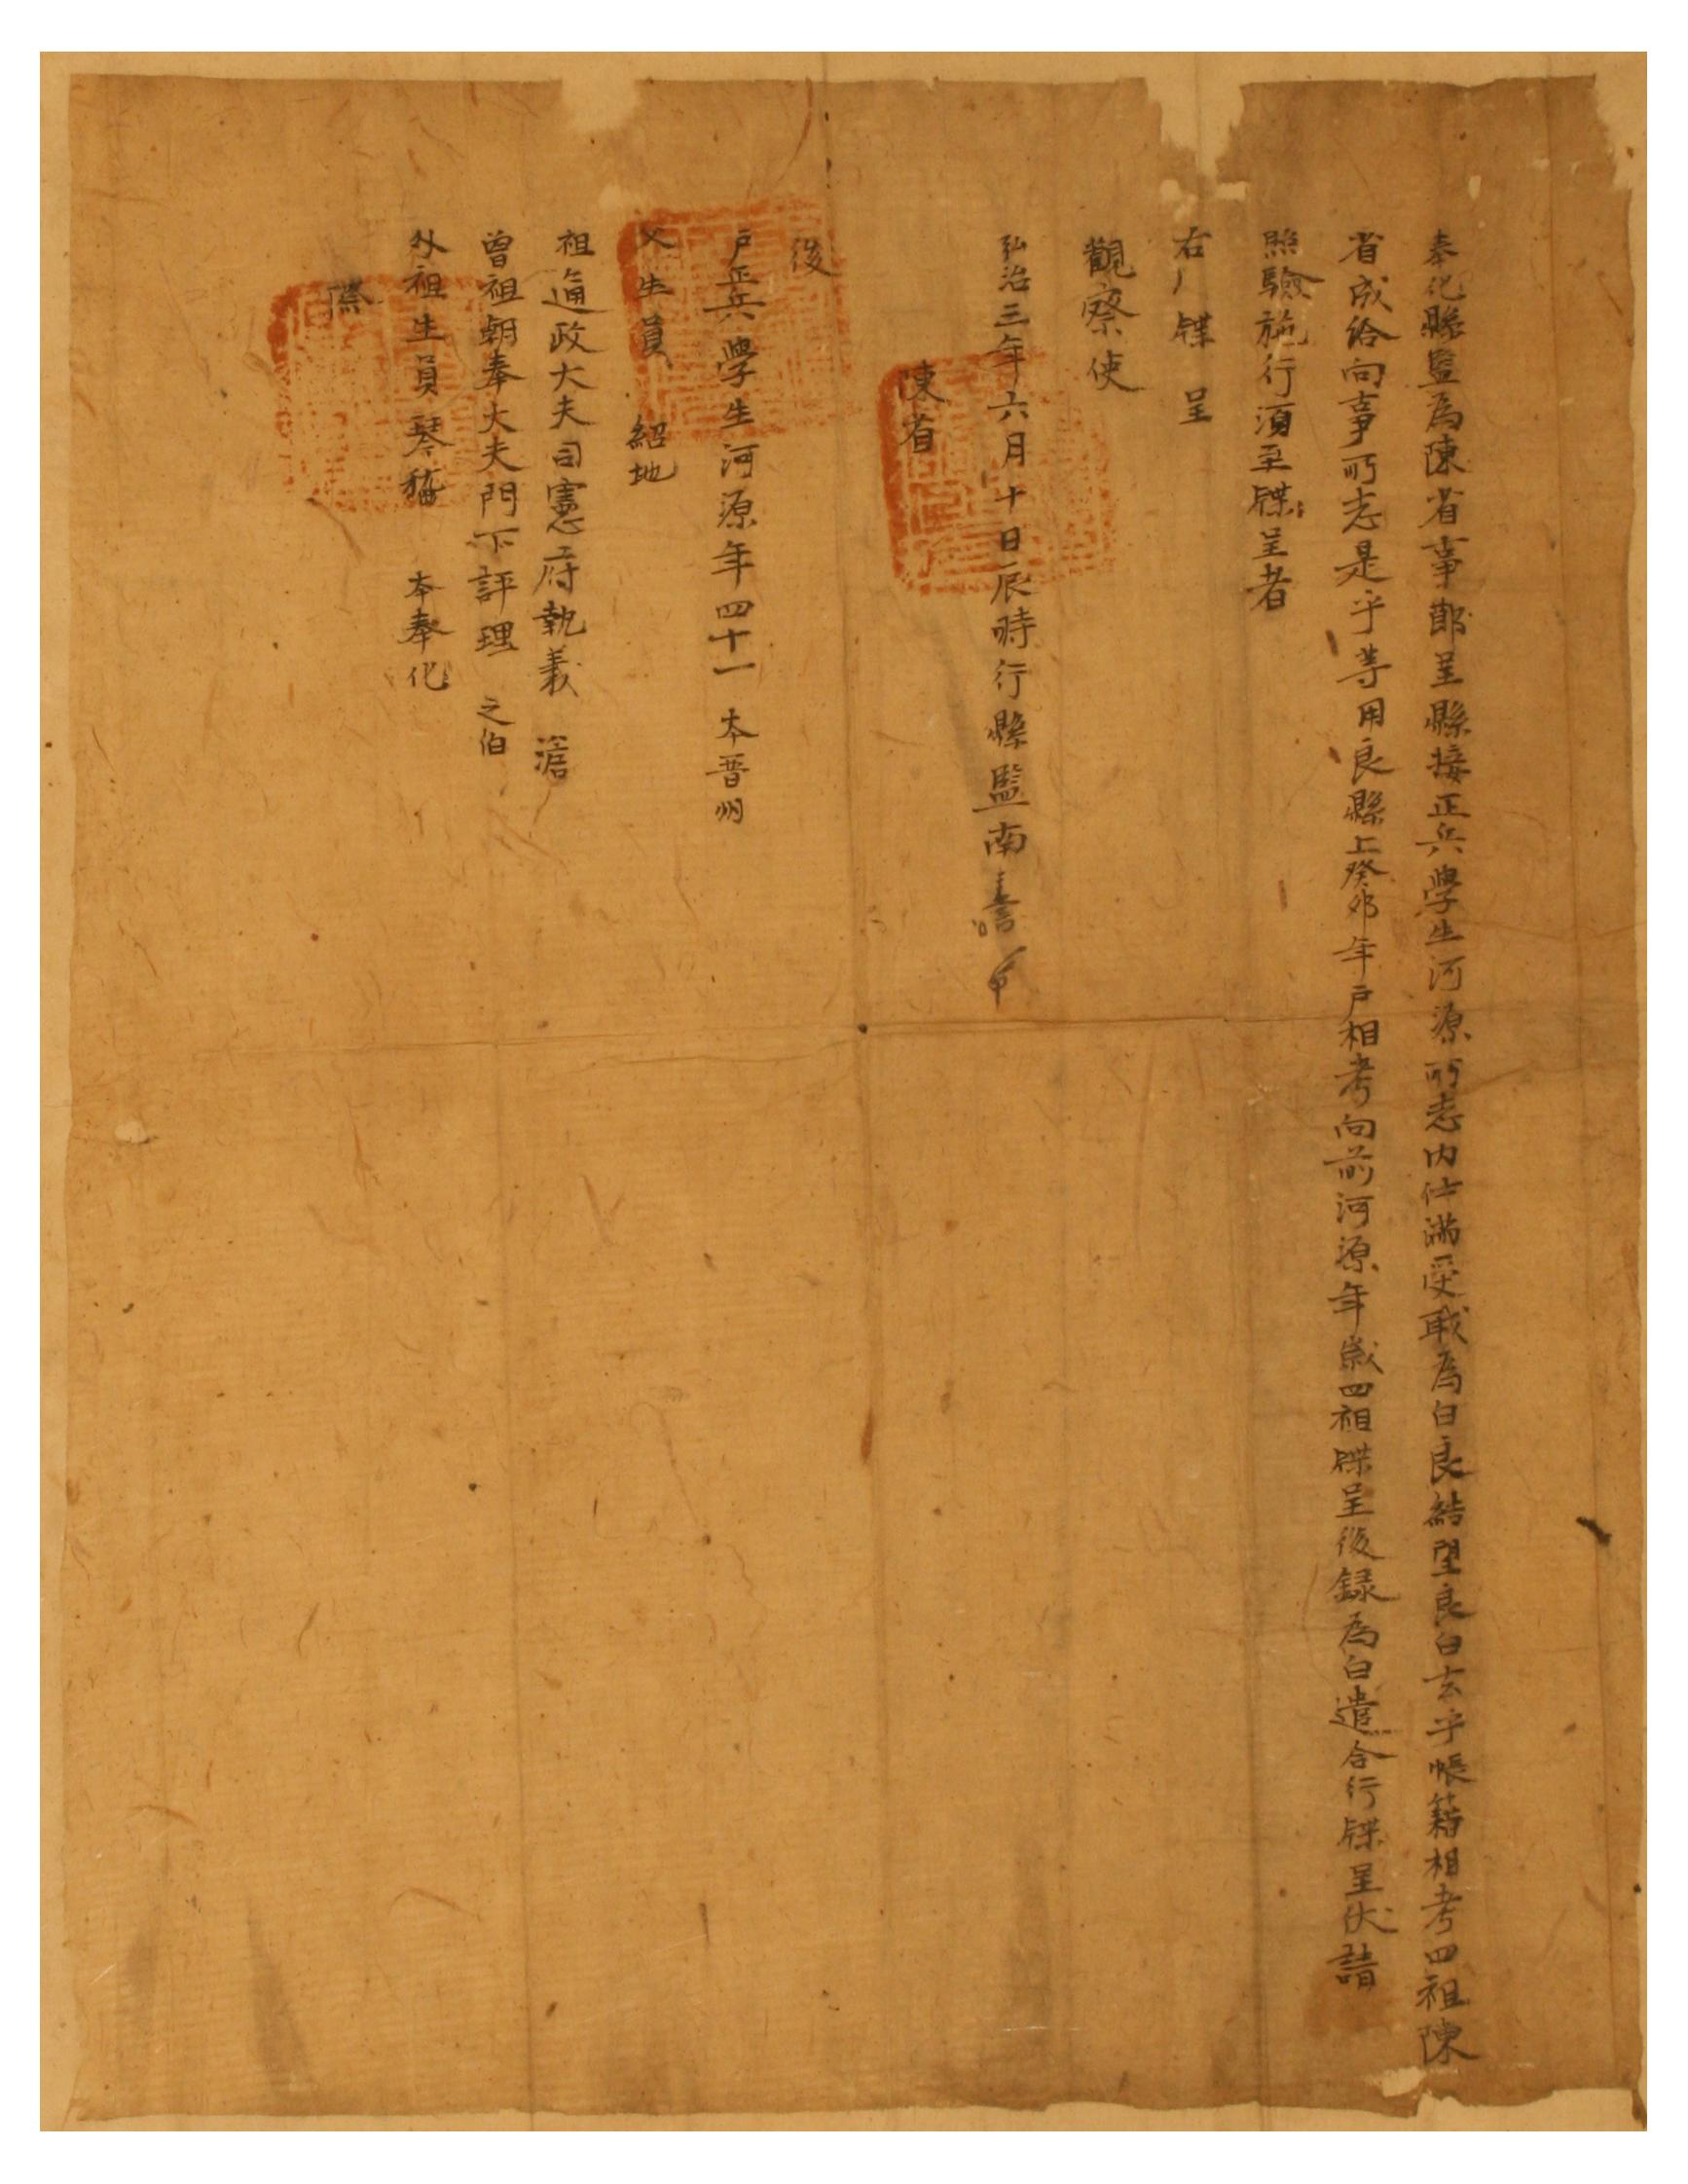 奉化縣監爲陳省事節呈縣接正兵學生河源所志內仕滿受職爲白良結望良白去乎帳籍相考四祖陳
省成給向事所志是乎等用良縣上癸卯年戶相考向前河源年歲四祖牒呈後錄爲白遣合行牒呈伏請
照驗施行須至牒呈者
右牒呈
觀察使
弘治三年六月十日辰時行縣監南
陳省
後
戶正兵學生河源年四十一 本晉州
父生員 紹地
祖通政大夫司憲府執義 澹
曾祖朝奉大夫門下評理 之伯
外祖生員琴 本奉化
際